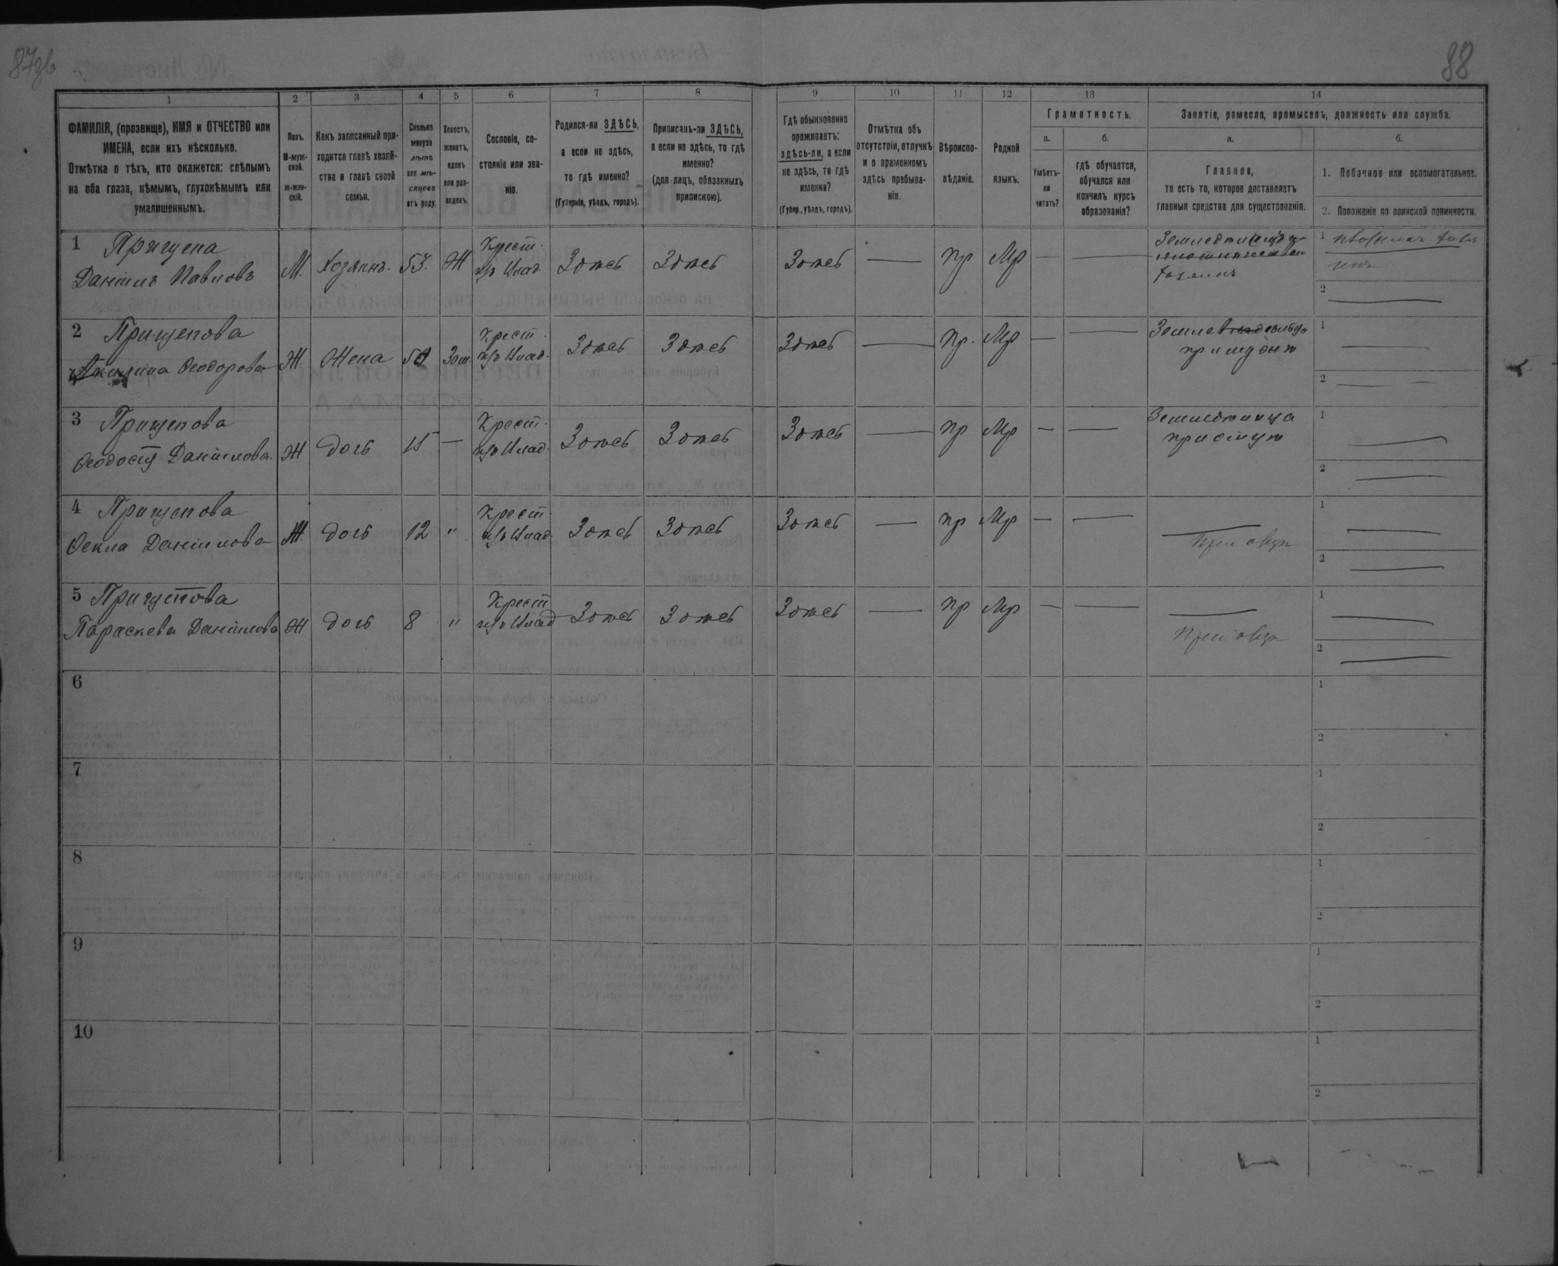 87об
88
1
2
3
4
5
6
7
8
9
10
11
12
13
14
ФАМИЛІЯ, (прозвище), ИМЯ и ОТЧЕСТВО или
ИМЕНА, если ихъ нѣсколько.
Отмѣтка о тѣхъ, кто окажется: слѣпымъ
на оба глаза, нѣмымъ, глухонѣмымъ или
умалишеннымъ.
Полъ.
М-муж-
ской.
ж-жен-
скій.
Какъ записанный при-
ходится главѣ хозяй-
ства и главѣ своей
семьи.
Сколько
минуло
лѣтъ
или мѣ-
сяцевъ
отъ роду.
Холостъ,
женатъ,
вдовъ
или раз-
веденъ.
Сословіе, со-
стояніе или зва-
ніе.
Родился-ли ЗДѢСЬ,
а если не здѣсь,
то гдѣ именно?
(Губернія, уѣздъ, городъ).
Приписанъ-ли ЗДѢСЬ,
а если не здѣсь, то гдѣ
именно?
(для лицъ, обязанныхъ
припискою).
Гдѣ обыкновенно
проживаетъ:
здѣсь-ли, а если
не здѣсь, то гдѣ
именно?
(Губер., уѣздъ, городъ).
Отмѣтка объ
отсутствіи, отлучкѣ
и о временномъ
здѣсь пребыва-
ніи.
Вѣроиспо-
вѣданіе.
Родной
языкъ.
Грамотность.
а.
б.
Умѣетъ-
ли
читать?
гдѣ обучается,
обучался или
кончилъ курсъ
образованія?
Занятіе, ремесло, промыселъ, должность или служба.
а.
б.
Главное,
то есть то, которое доставляетъ
главныя средства для существованія.
1. Побочное или вспомогательное.
2. Положеніе по воинской повинности.
1 Прищепа
Даніилъ Павловъ
М.
Хозяинъ.
53
Ж
Крест.
Здѣсь
Здѣсь
Здѣсь
—
пр
Мр
—
—
1
2
—
2 Прищепова
Акилина Ѳеодорова
Ж.
Жена
Зам.
Крест.
Здѣсь
Здѣсь
Здѣсь
—
пр.
Мр
—
—
при мужѣ
1
—
2
—
3 Прищепова
Ѳеодосія Даніилова
Ж
дочь
15
—
Крест.
Здѣсь
Здѣсь
Здѣсь
—
пр
Мр
—
—
при отцѣ
1
—
2
—
4 Прищепова
Ѳекла Даніилова
Ж.
дочь
12
"
Крест.
Здѣсь
Здѣсь
Здѣсь
—
пр
Мр
—
—
—
при отцѣ
1
—
2
—
5 Прищепова
Параскева Даніилова
Ж
дочь
8
"
Крест.
Здѣсь
Здѣсь
Здѣсь
—
пр
Мр
—
—
—
при отцѣ
1
—
2
—
6
1
2
7
1
2
8
1
2
9
1
2
10
1
2